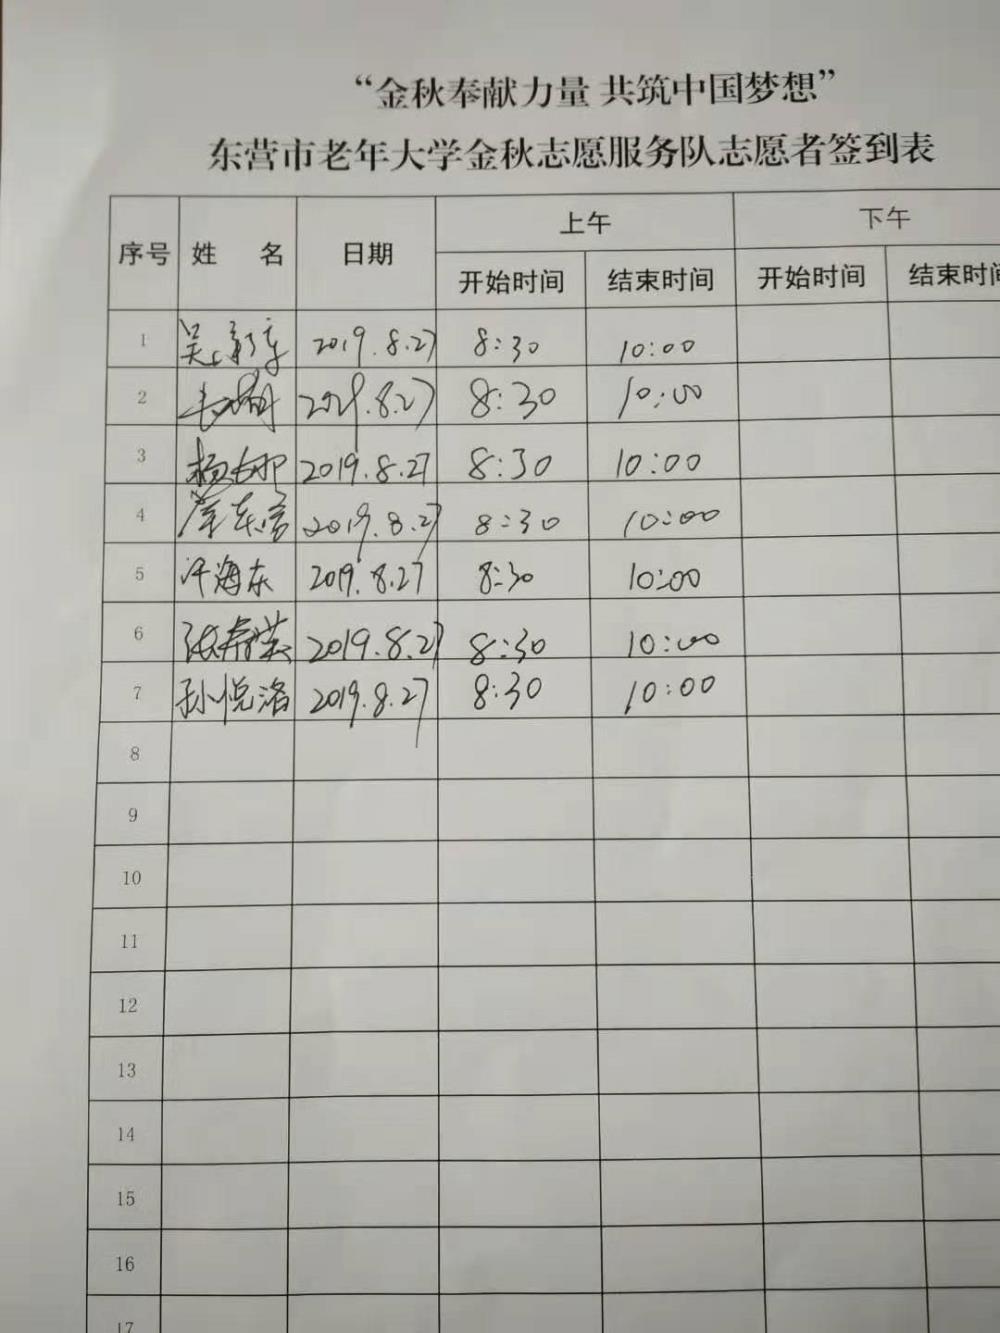 “金秋奉献力量 共筑中国梦想”
东营市老年大学金秋志愿服务队志愿者签到表
序号 姓 名 日期 上午 下午
开始时间 结束时间 开始时间 结束时间
1 2019.8.27 8:30 10:00
2 2019.8.27 8:30 10:00
3 2019.8.27 8:30 10:00
4 2019.8.27 8:30 10:00
5 许海东 2019.8.27 8:30 10:00
6 张春英 2019.8.27 8:30 10:00
7 孙悦洛 2019.8.27 8:30 10:00
8
9
10
11
12
13
14
15
16
17